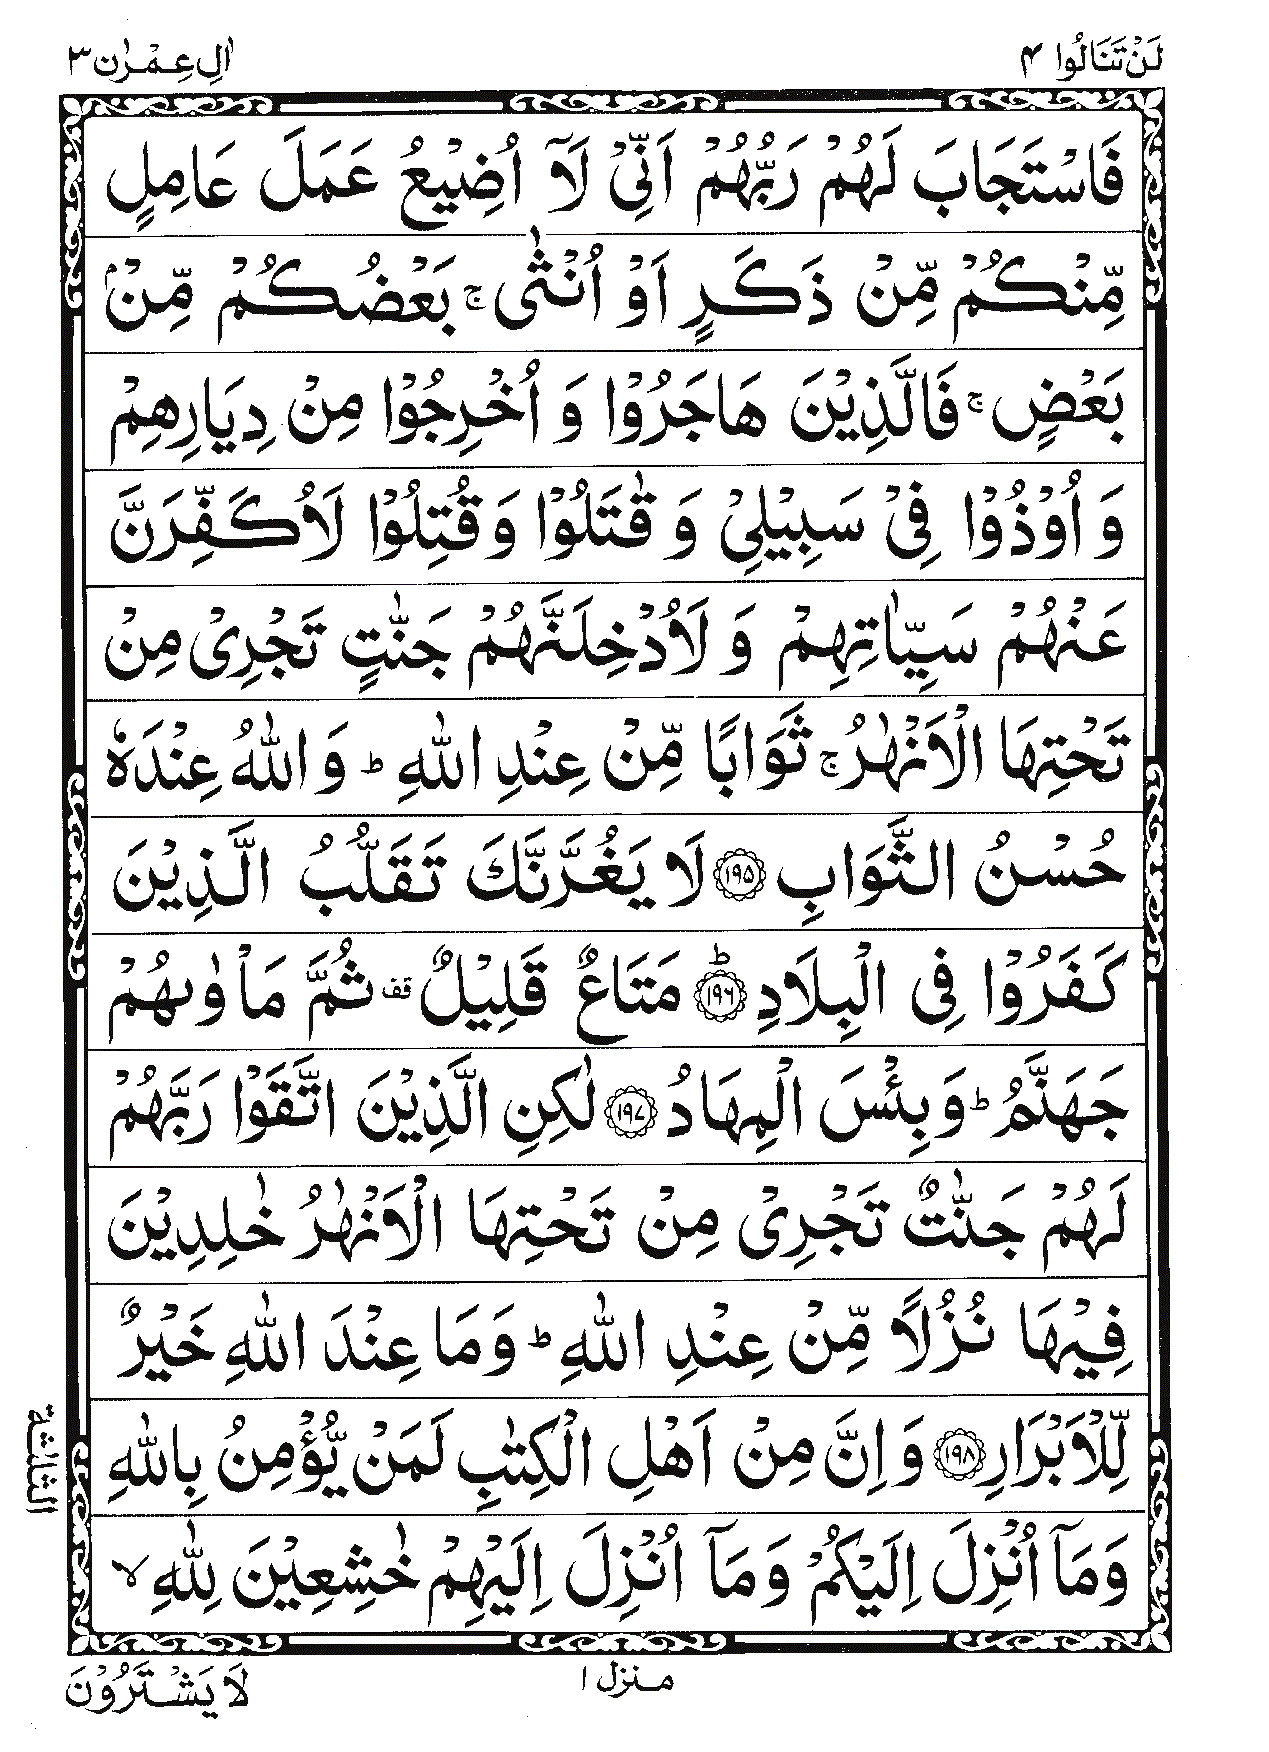 لَنْ تَنَالُوا ۴
اٰلِ عِمْرٰن ۳
فَاسْتَجَابَ لَهُمْ رَبُّهُمْ اَنِّیْ لَاۤ اُضِیْعُ عَمَلَ عَامِلٍ
مِّنْكُمْ مِّنْ ذَكَرٍ اَوْ اُنْثٰی ۚ بَعْضُكُمْ مِّنْۢ
بَعْضٍ ۚ فَالَّذِیْنَ هَاجَرُوْا وَ اُخْرِجُوْا مِنْ دِیَارِهِمْ
وَ اُوْذُوْا فِیْ سَبِیْلِیْ وَ قٰتَلُوْا وَ قُتِلُوْا لَاُكَفِّرَنَّ
عَنْهُمْ سَیِّاٰتِهِمْ وَ لَاُدْخِلَنَّهُمْ جَنّٰتٍ تَجْرِیْ مِنْ
تَحْتِهَا الْاَنْهٰرُ ۚ ثَوَابًا مِّنْ عِنْدِ اللّٰهِ ؕ وَ اللّٰهُ عِنْدَهٗ
حُسْنُ الثَّوَابِ ۝۱۹۵ لَا یَغُرَّنَّكَ تَقَلُّبُ الَّذِیْنَ
كَفَرُوْا فِی الْبِلَادِ ؕ۝۱۹۶ مَتَاعٌ قَلِیْلٌ قف ثُمَّ مَاْوٰىهُمْ
جَهَنَّمُ ؕ وَ بِئْسَ الْمِهَادُ ۝۱۹۷ لٰكِنِ الَّذِیْنَ اتَّقَوْا رَبَّهُمْ
لَهُمْ جَنّٰتٌ تَجْرِیْ مِنْ تَحْتِهَا الْاَنْهٰرُ خٰلِدِیْنَ
فِیْهَا نُزُلًا مِّنْ عِنْدِ اللّٰهِ ؕ وَ مَا عِنْدَ اللّٰهِ خَیْرٌ
لِّلْاَبْرَارِ ۝۱۹۸ وَ اِنَّ مِنْ اَهْلِ الْكِتٰبِ لَمَنْ یُّؤْمِنُ بِاللّٰهِ
وَ مَاۤ اُنْزِلَ اِلَیْكُمْ وَ مَاۤ اُنْزِلَ اِلَیْهِمْ خٰشِعِیْنَ لِلّٰهِ ۙ
الثالثة
منزل ۱
لَا یَشْتَرُوْنَ